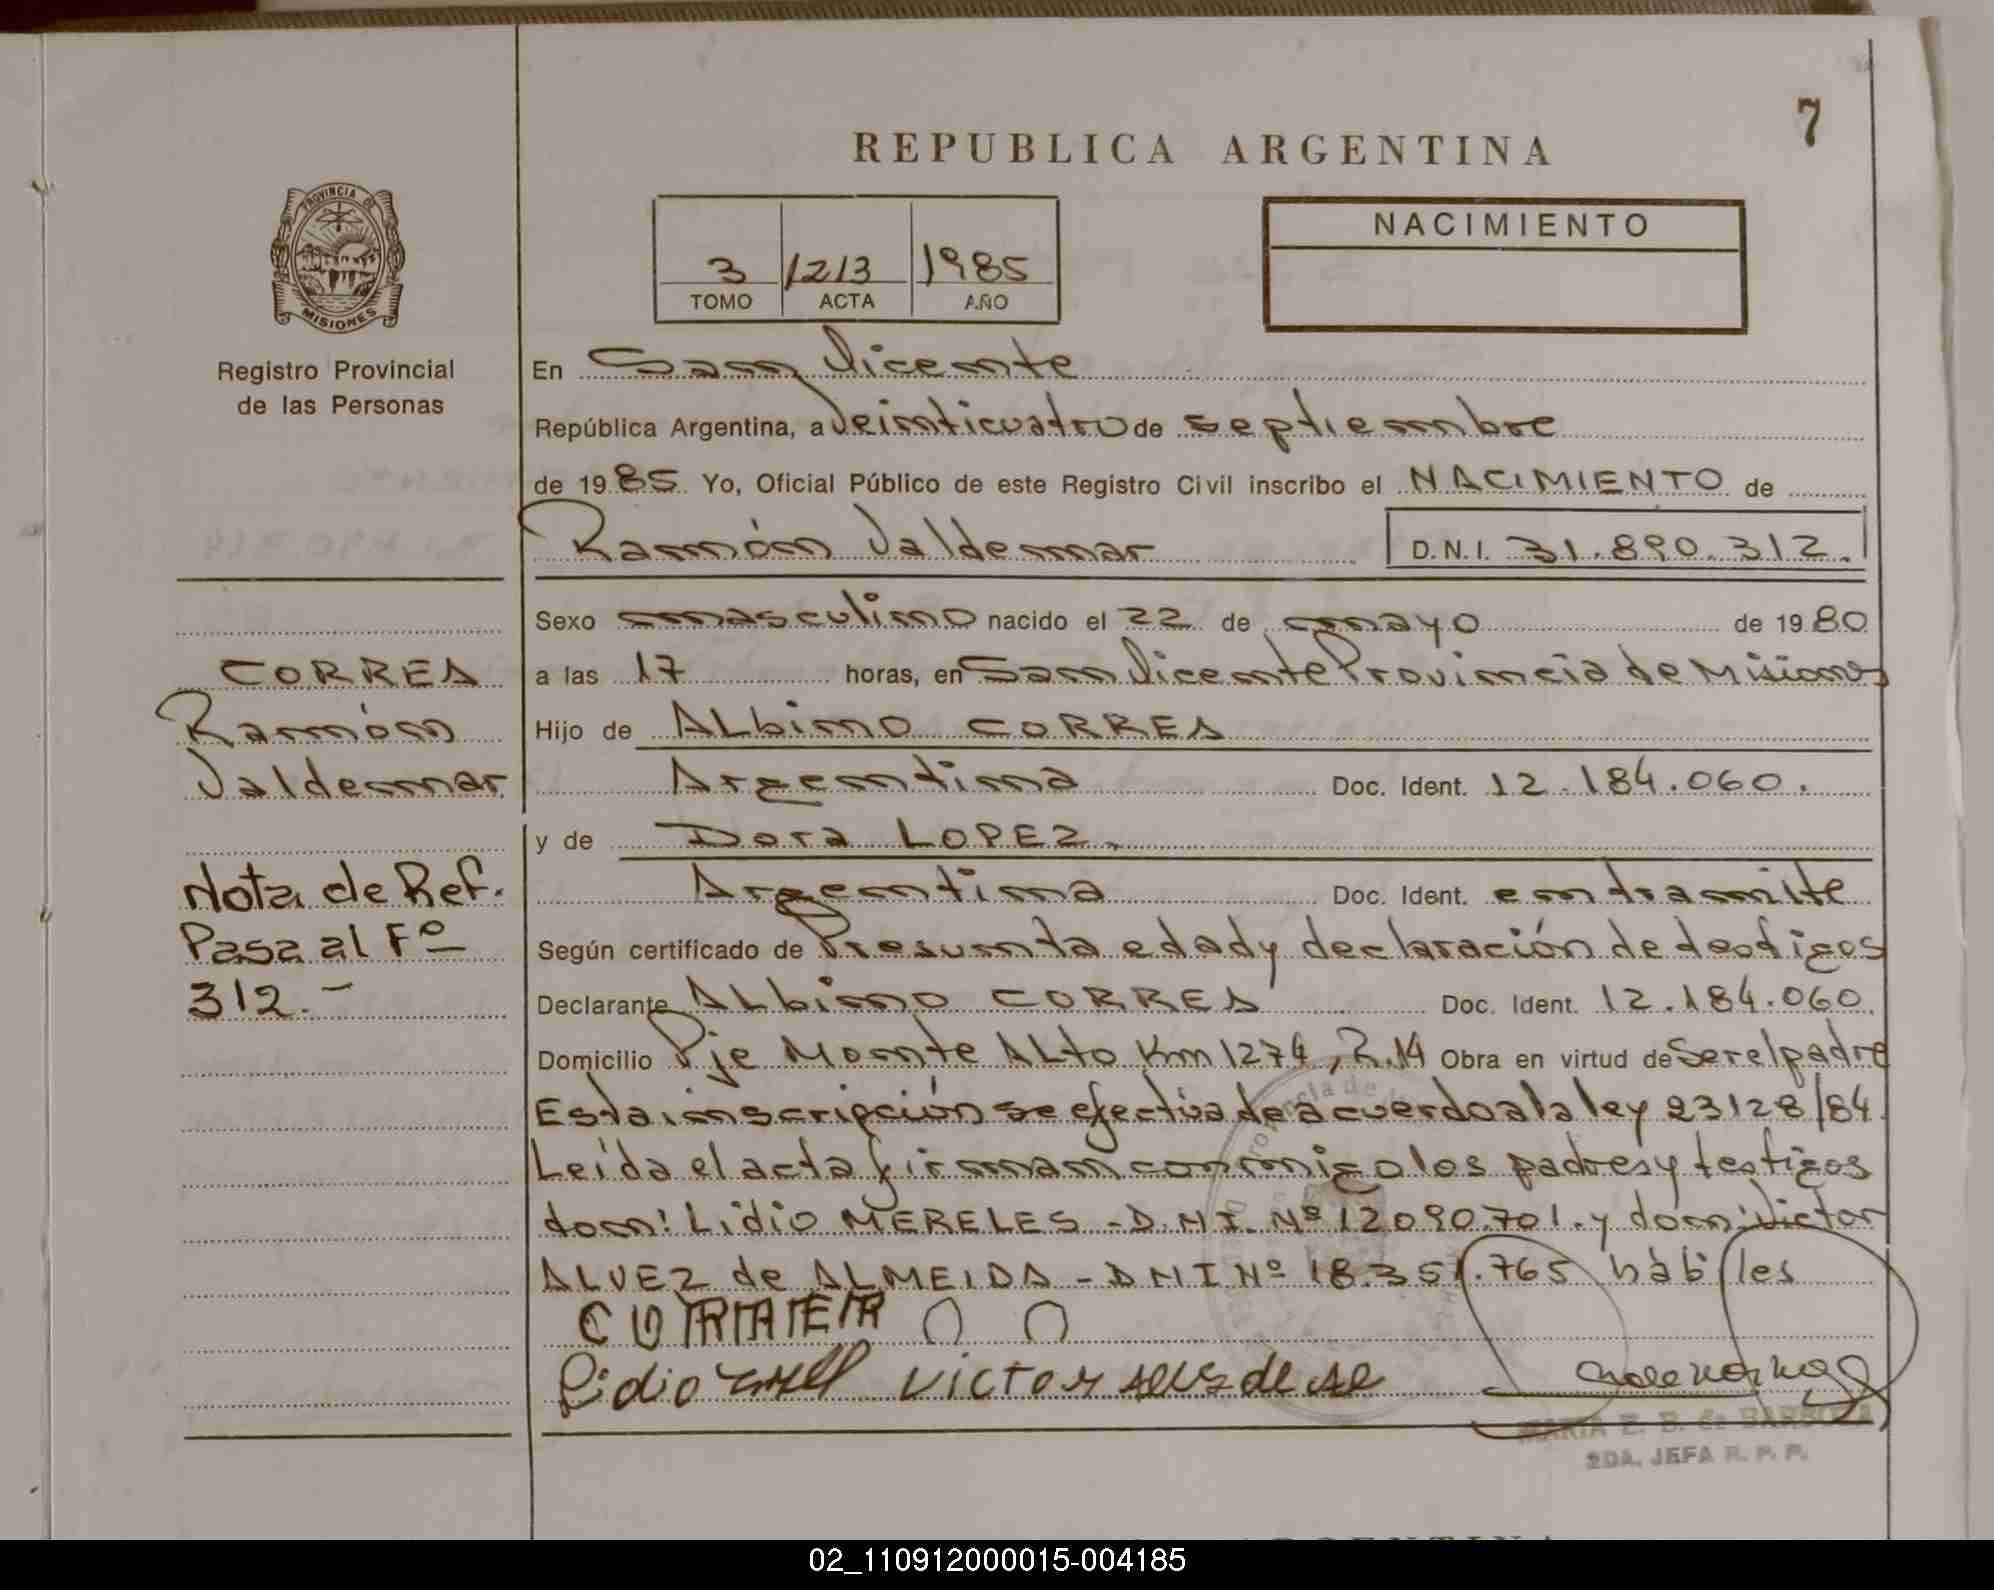 7
REPUBLICA ARGENTINA
PROVINCIA DE
MISIONES
Registro Provincial
de las Personas
3 1213 1985
TOMO ACTA AÑO
NACIMIENTO
En San Vicente
República Argentina, a Veinticuatro de septiembre
de 1985 Yo, Oficial Público de este Registro Civil inscribo el NACIMIENTO de
Ramón Valdemar D.N.I. 31.890.312.
Sexo masculino nacido el 22 de mayo de 1980
a las 17 horas, en San Vicente Provincia de Misiones
Hijo de ALbino CORREA
Argentina Doc. Ident. 12.184.060.
y de Dora LOPEZ.
Argentina Doc. Ident. en tramite
Según certificado de Presunta edad y declaración de testigos
Declarante ALbino CORREA Doc. Ident. 12.184.060.
Domicilio Pje Monte ALto Km 1274, R.14 Obra en virtud de Ser el padre
Esta inscripción se efectúa de acuerdo a la ley 23128/84.
Leída el acta firman conmigo los padres y testigos
don: Lidio MERELES - D.NI. Nº 12090.701. y don: Victor
ALVEZ de ALMEIDA - DNI Nº 18.351.765 hábiles
CORREA
Ramón
Valdemar
Nota de Ref.
Pasa al Fº
312.-
Lidio
Victor
MARIA E. B. de BARBOZA
2DA. JEFA R. P. P.
02_110912000015-004185